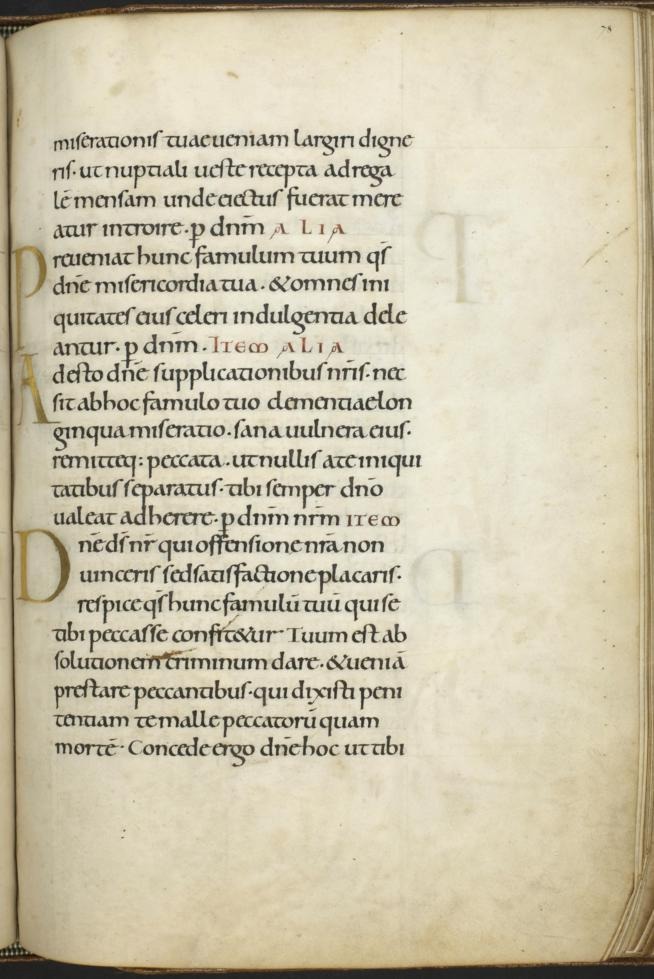 78
miserationis tuae ueniam largiri digne
ris· ut nuptiali ueste recepta ad rega
lē mensam unde eiectus fuerat mere
atur introire· p̄ dnm̄ ALIA
Preueniat hunc famulum tuum qs̄
dnē misericordia tua· & omnes ini
quitates eius celeri indulgentia dele
antur· p̄ dnm̄· ITEM ALIA
Adesto dnē supplicationibus nr̄is· nec
sit ab hoc famulo tuo clementiae lon
ginqua miseratio· sana uulnera eius·
remitteq: peccata· ut nullis a te iniqui
tatibus separatus· tibi semper dnō
ualeat adherere· p̄ dnm̄ nr̄m ITEM
Dnē ds̄ nr̄ qui offensione nr̄a non
uinceris sed satisfactione placaris·
respice qs̄ hunc famulū tuū qui se
tibi peccasse confit&ur Tuum est ab
solutionem criminum dare· & ueniā
prestare peccantibus· qui dixisti peni
tentiam te malle peccatorū quam
mortē· Concede ergo dnē hoc ut tibi